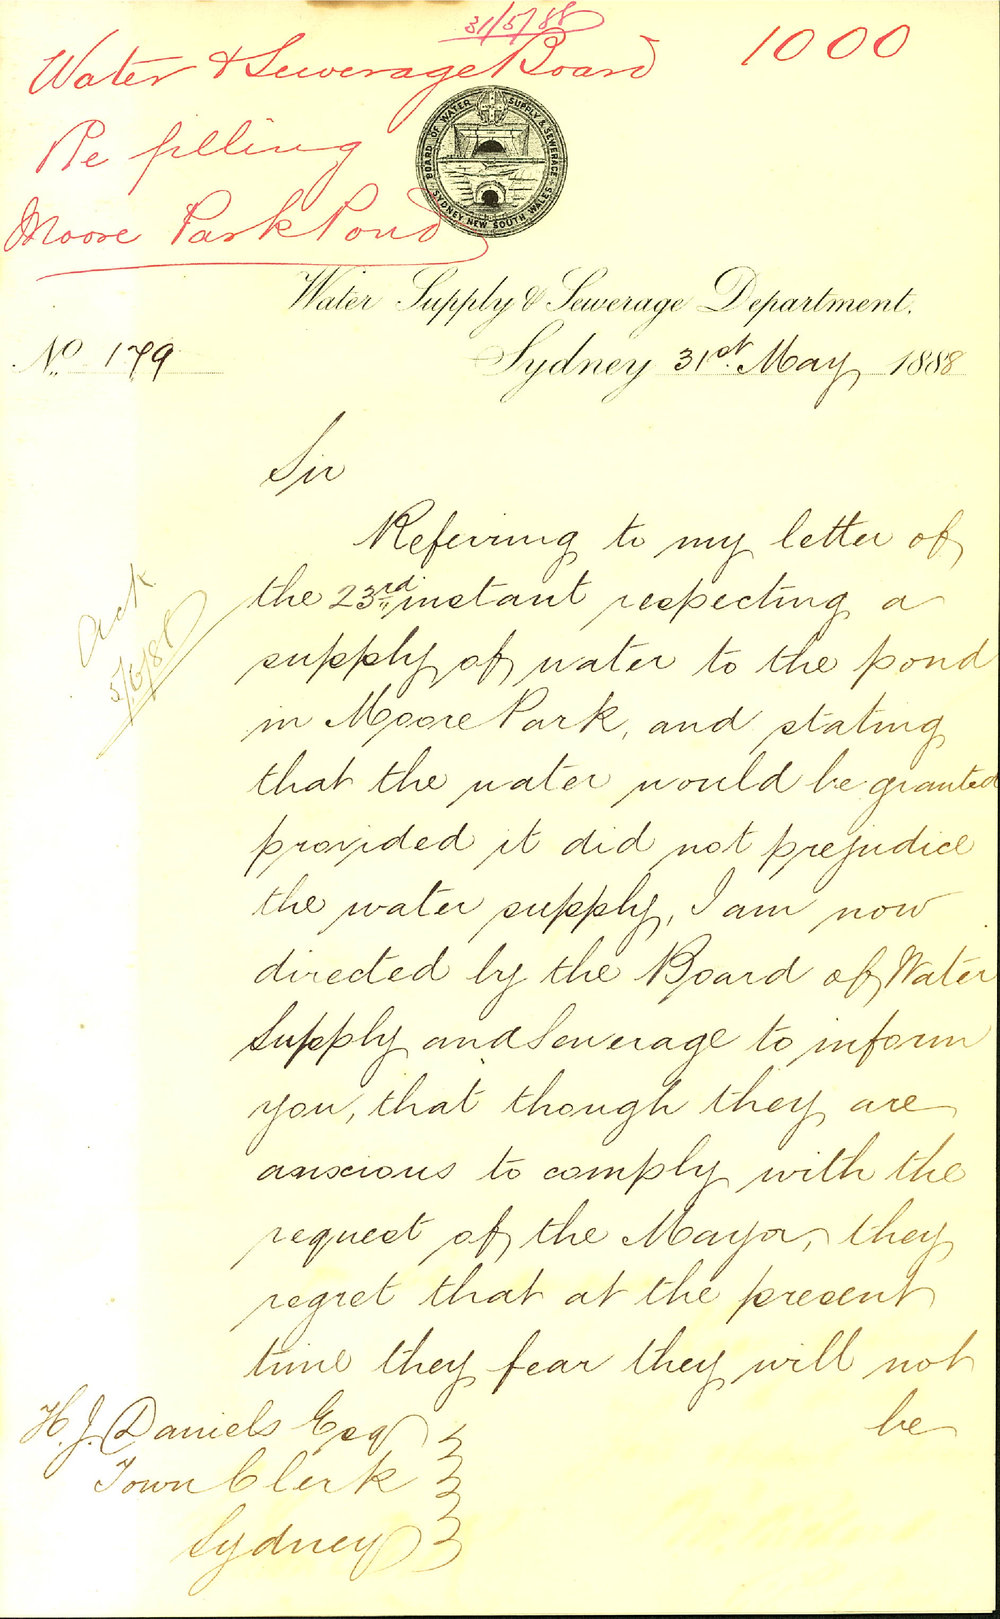 31/5/88
Water & Sewerage Board 1000
Re filling
Moore Park Pond
BOARD OF WATER SUPPLY & SEWERAGE
SYDNEY NEW SOUTH WALES
Water Supply & Sewerage Department.
No. 179 Sydney 31st May 1888
Sir
Referring to my letter of
the 23rd instant respecting a
supply of water to the pond
in Moore Park, and stating
that the water would be granted
provided it did not prejudice
the water supply, I am now
directed by the Board of Water
Supply and Sewerage to inform
you, that though they are
anxious to comply with the
request of the Mayor, they
regret that at the present
time they fear they will not
be
Ack
5/6/88
H. J. Daniels Esq
Town Clerk
Sydney